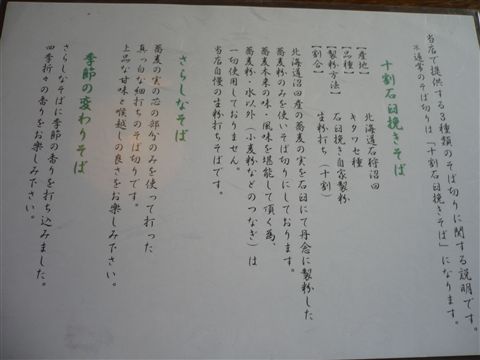 当店で提供する3種類のそば切りに関する説明です。
※通常のそば切りは「十割石臼挽きそば」になります。
十割石臼挽きそば
【産地】 北海道石狩沼田
【品種】 キタワセ種
【製粉方法】 石臼挽き自家製粉
【割合】 生粉打ち(十割)
北海道沼田産の蕎麦の実を石臼にて丹念に製粉した
蕎麦粉のみを使いそば切りにしております。
蕎麦本来の味・風味を堪能して頂く為、
蕎麦粉・水以外(小麦粉などのつなぎ)は
一切使用しておりません。
当店自慢の生粉打ちそばです。
さらしなそば
蕎麦の実の芯の部分のみを使って打った
真っ白な細打ちのそば切りです。
上品な甘味と喉越しの良さをお楽しみ下さい。
季節の変わりそば
さらしなそばに季節の香りを打ち込みました。
四季折々の香りをお楽しみ下さい。